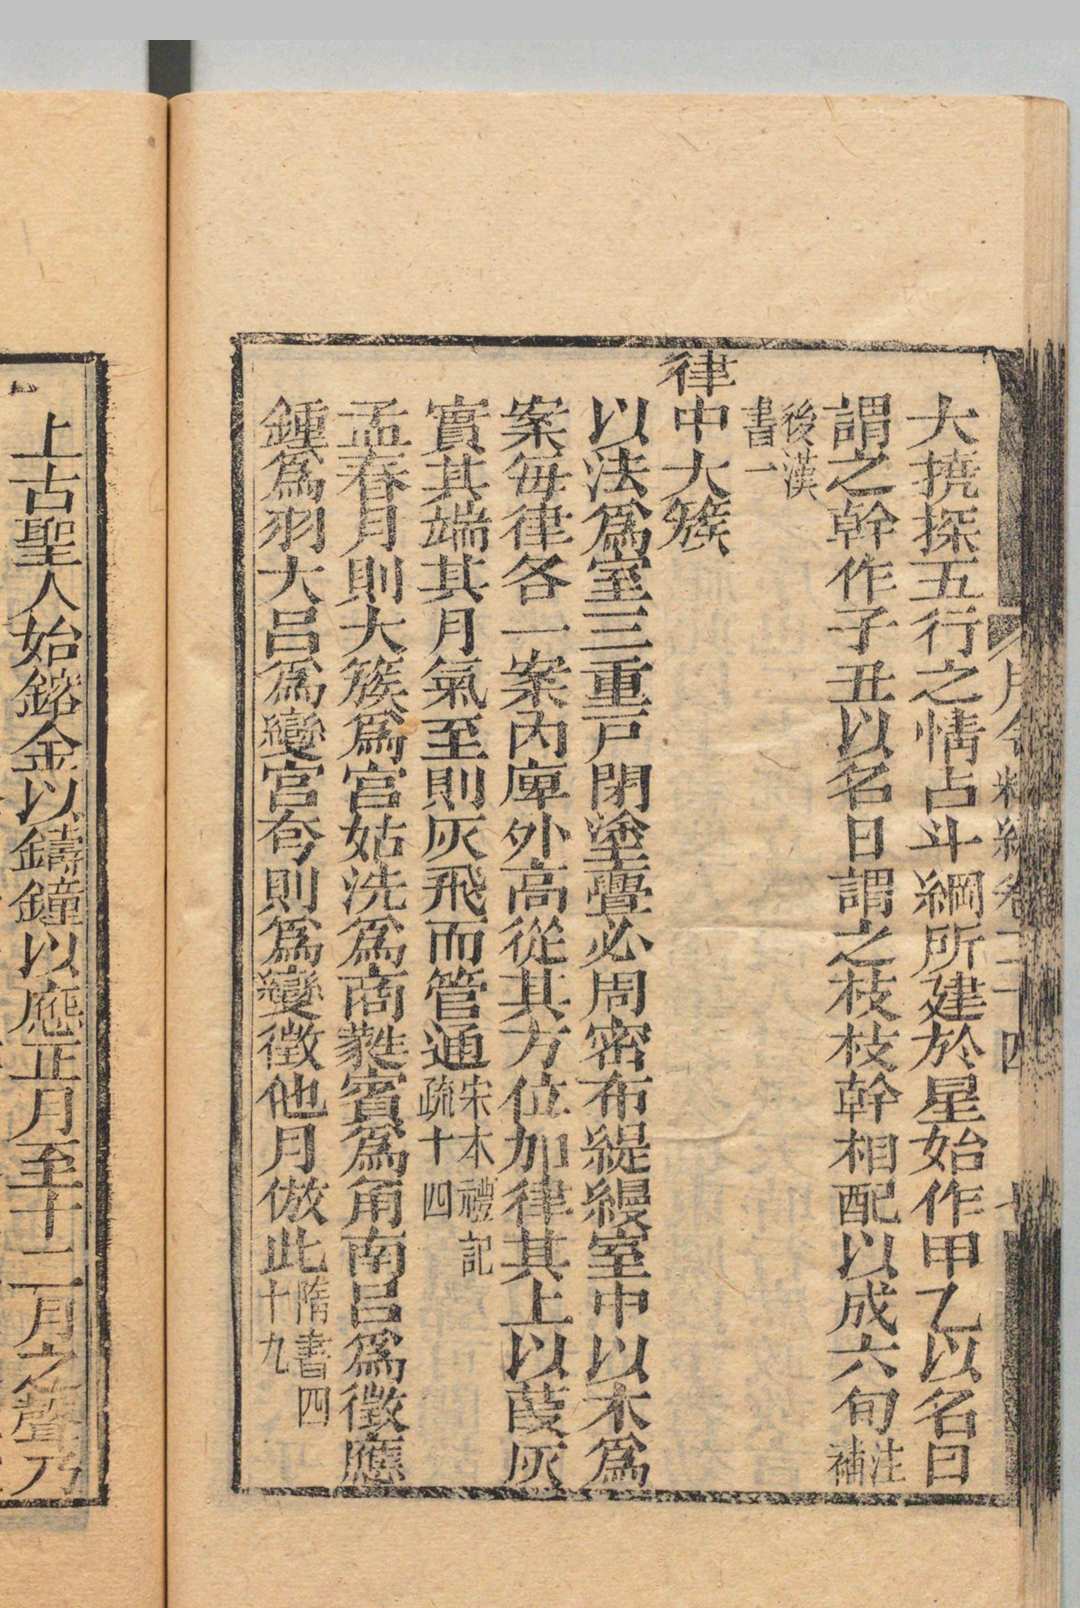 大撓探五行之情占斗綱所建於星始作甲乙以名日
謂之幹作子丑以名日謂之枝枝幹相配以成六旬注補
後漢書一
律中大簇
以法爲室三重戸閉塗舋必周密布緹縵室中以木爲
案每律各一案內庳外高從其方位加律其上以葭灰
實其端其月氣至則灰飛而管通宋本禮記疏十四
孟春月則大簇爲宮姑洗爲商蕤賓爲角南呂爲徵應
鍾爲羽大呂爲變宮夸則爲變徵他月倣此隋書四十九
上古聖人始鎔金以鑄鐘以應正月至十二月之聲乃